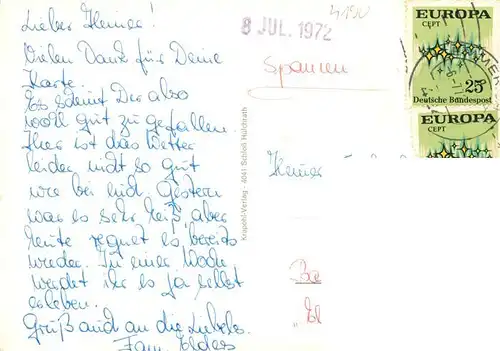 Lieber Heiner!
Vielen Dank für Deine
Karte.
Es scheint Dir also
wohl gut zu gefallen.
Hier ist das Wetter
leider nicht so gut
wie bei euch. Gestern
war es sehr heiß, aber
heute regnet es bereits
wieder. In einer Woche
werdet ihr es ja selbst
erleben.
Gruß auch an die
Fam.
Krapohl-Verlag - 4041 Schloß Hülchrath
8 JUL. 1972
Spanien
Heiner
EUROPA
CEPT
25
Deutsche Bundespost
EUROPA
CEPT